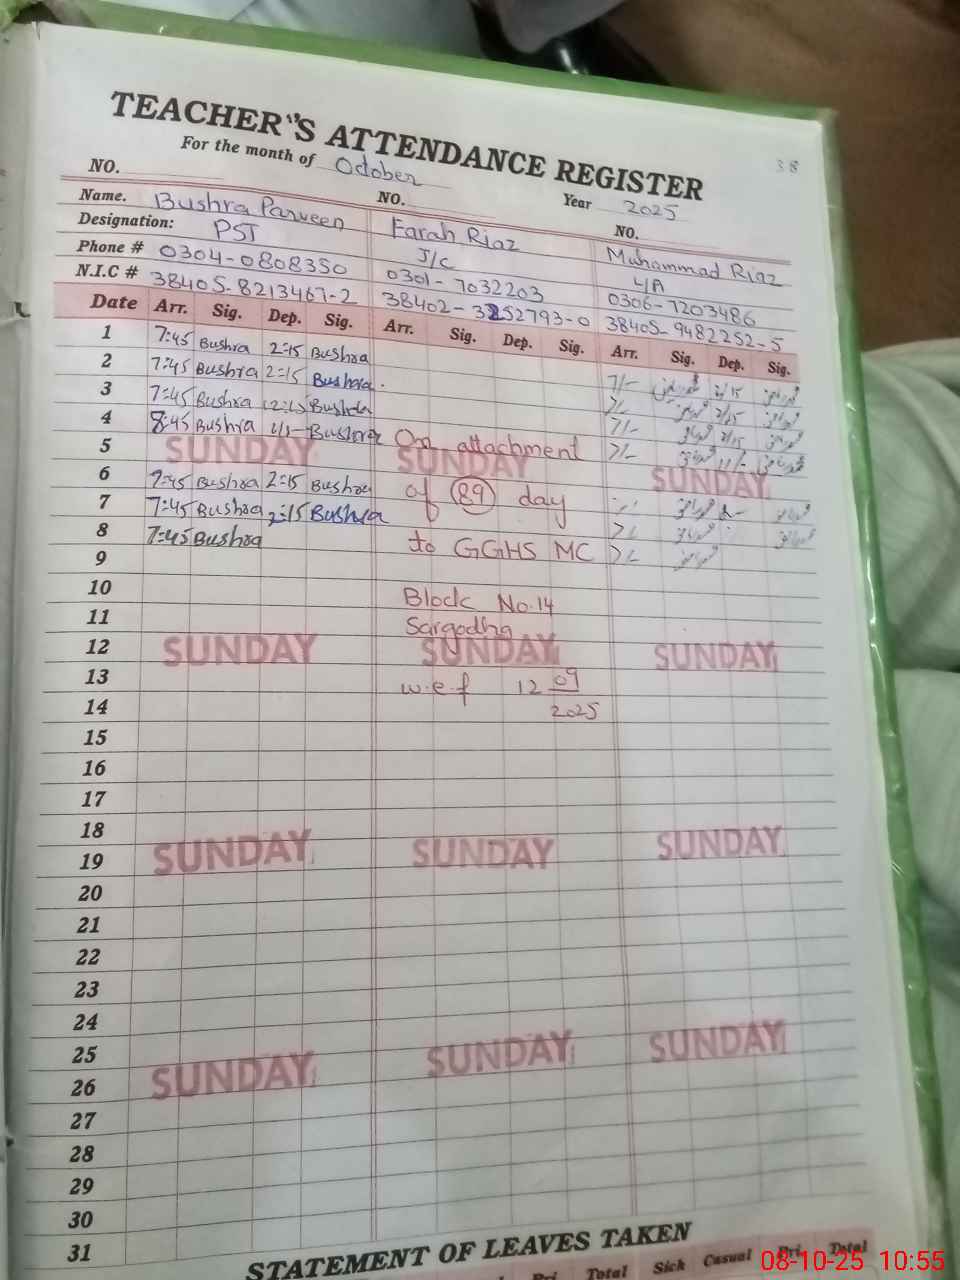 TEACHER'S ATTENDANCE REGISTER
38
For the month of October
Year 2025
NO. NO. NO.
Name. Bushra Parveen Farah Riaz Muhammad Riaz
Designation: PST J/C L/A
Phone # 0304-0808350 0301-7032203 0306-7203486
N.I.C # 38405-8213467-2 38402-3252793-0 38405-9482252-5
Date Arr. Sig. Dep. Sig. Arr. Sig. Dep. Sig. Arr. Sig. Dep. Sig.
1 7:45 Bushra 2:15 Bushra 7/- 2/15
2 7:45 Bushra 2:15 Bushra 7/- 2/15
3 7:45 Bushra 12:15 Bushra 7/- 2/15
4 8:45 Bushra Bushra On attachment 7/- 11/-
5 SUNDAY SUNDAY SUNDAY
6 7:45 Bushra 2:15 Bushra of 89 day
7 7:45 Bushra 2:15 Bushra
8 7:45 Bushra to GGHS MC
9
10 Block No.14
11 Sargodha
12 SUNDAY SUNDAY SUNDAY
13 w.e.f 12 09
14 2025
15
16
17
18
19 SUNDAY SUNDAY SUNDAY
20
21
22
23
24
25
26 SUNDAY SUNDAY SUNDAY
27
28
29
30
31
STATEMENT OF LEAVES TAKEN
Pri. Total Sick Casual Pri. Total
08-10-25 10:55